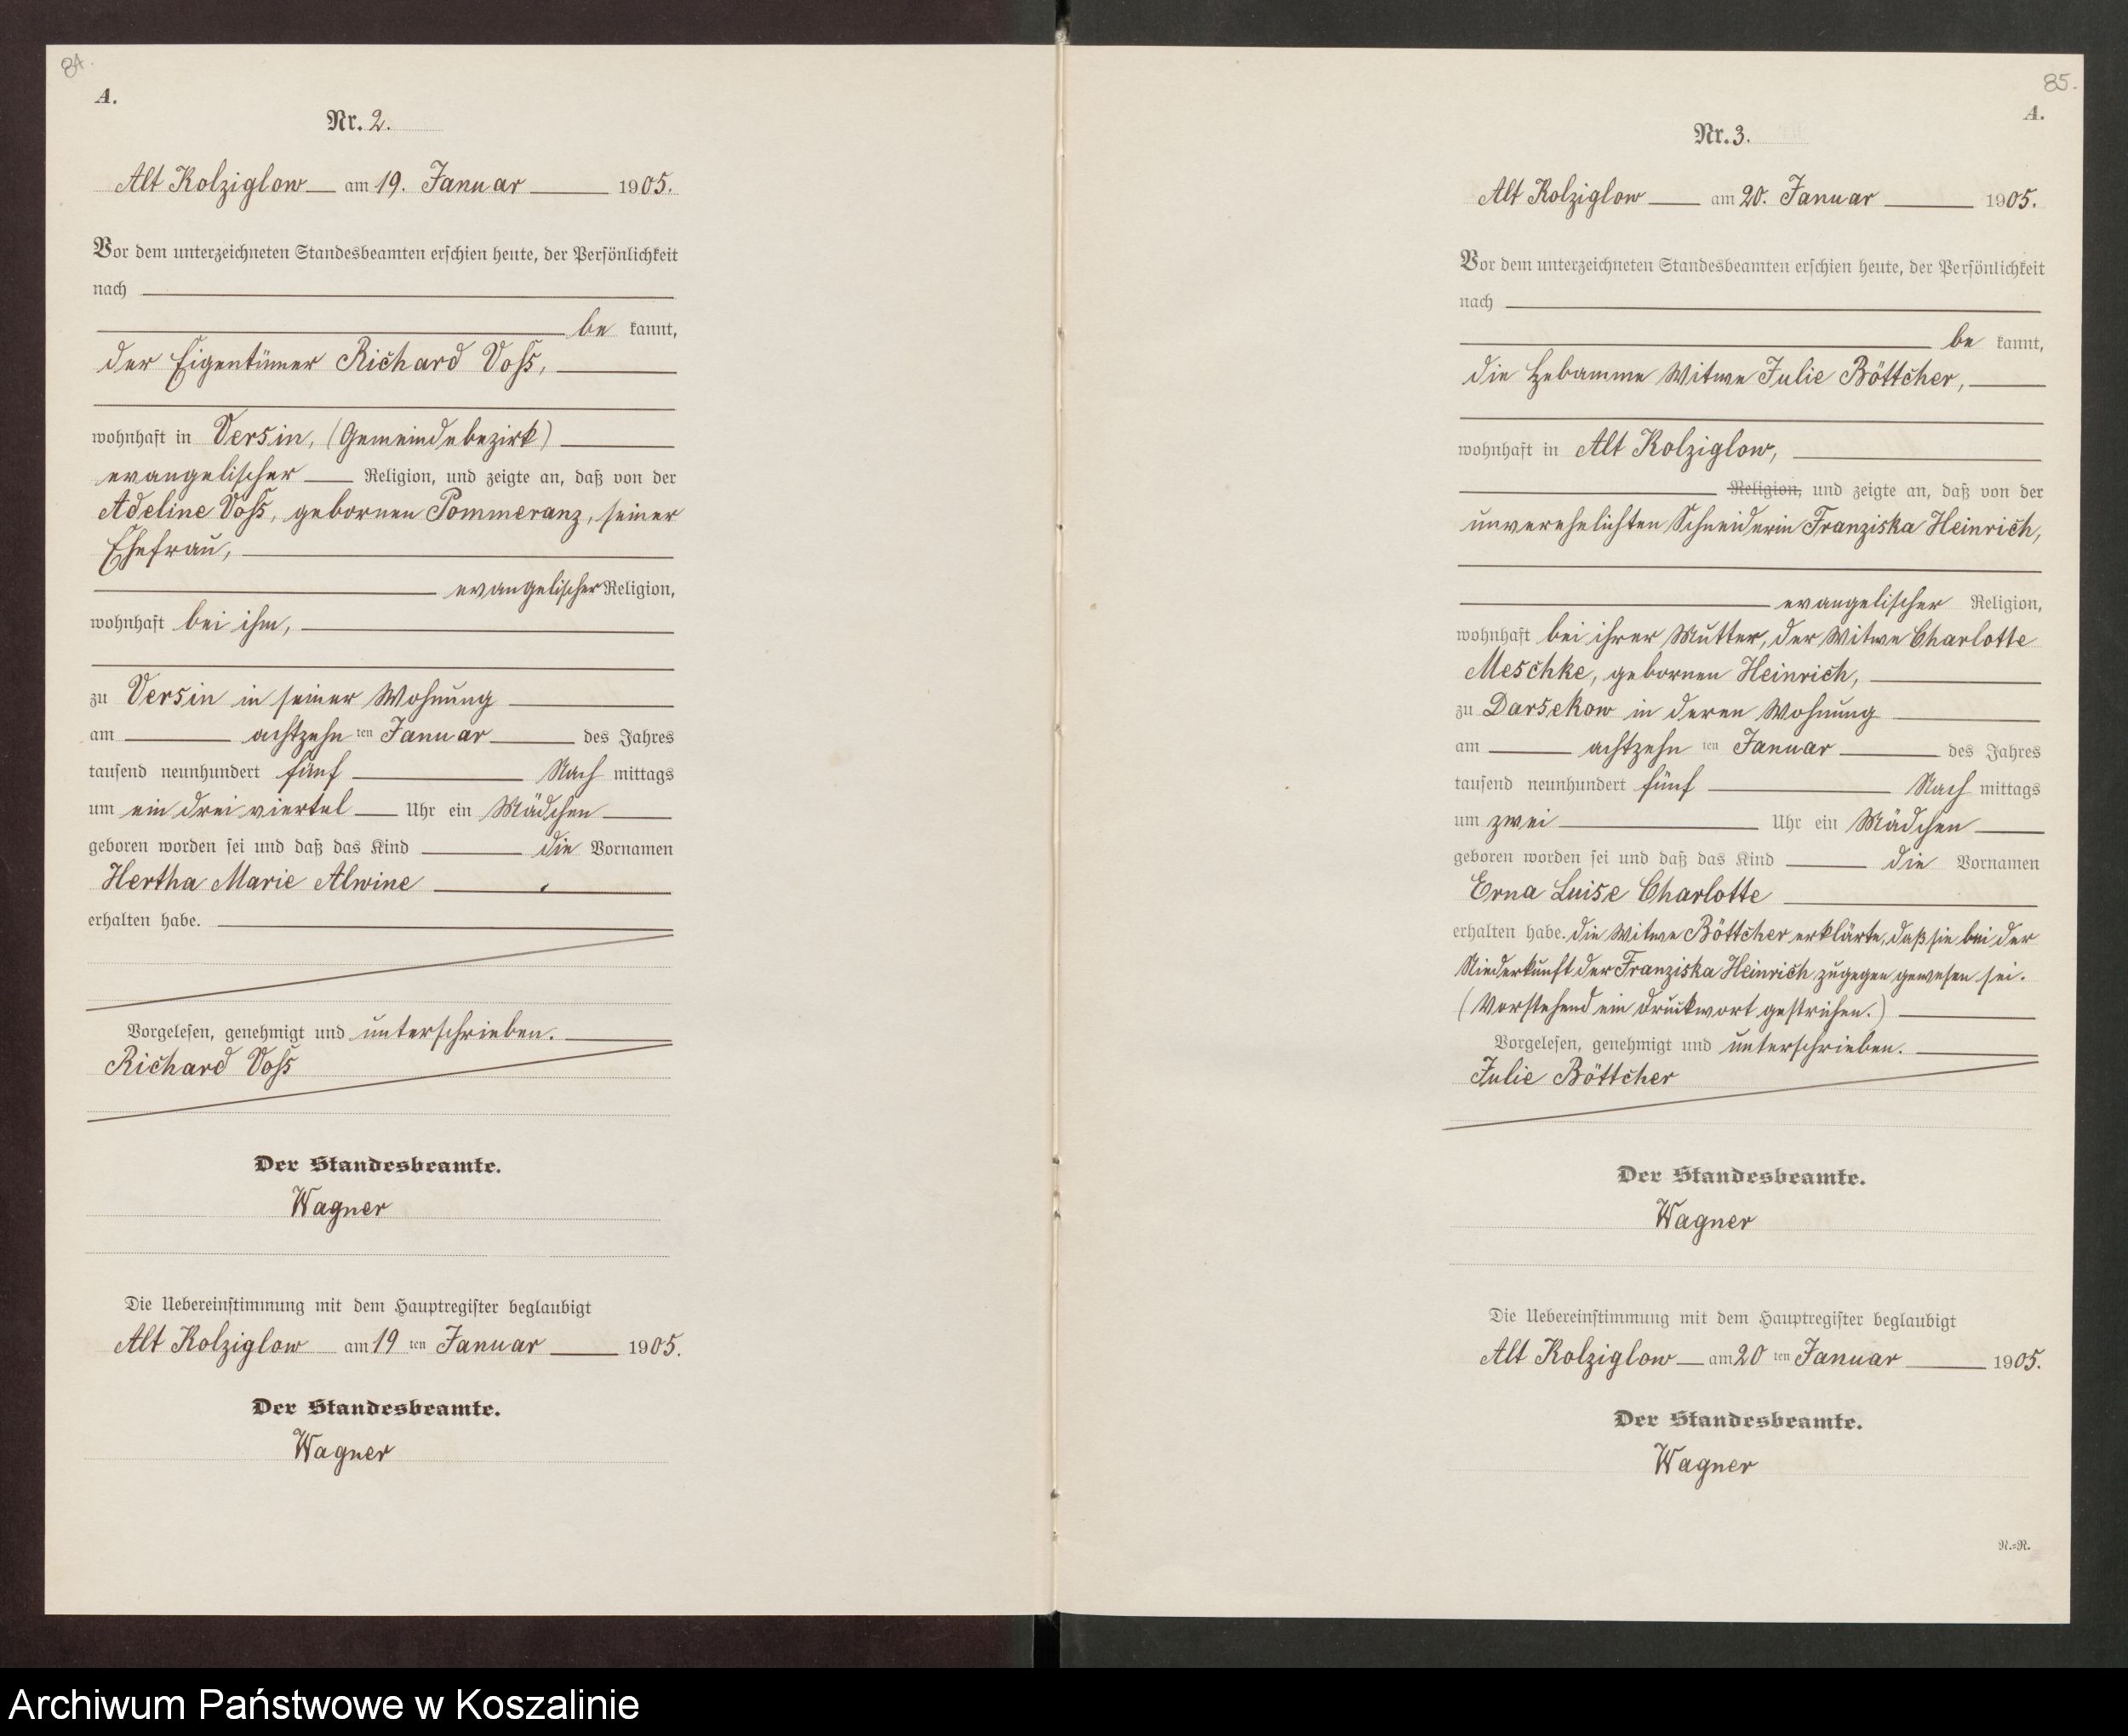 84.
A.
Nr. 2.
Alt Kolziglow am 19. Januar 1905.
Vor dem unterzeichneten Standesbeamten erschien heute, der Persönlichkeit
nach
be kannt,
der Eigentümer Richard Voß,
wohnhaft in Versin, (Gemeindebezirk)
evangelischer Religion, und zeigte an, daß von der
Adeline Voß, gebornen Pommeranz, seiner
Ehefrau,
evangelischer Religion,
wohnhaft bei ihm,
zu Versin in seiner Wohnung
am achtzehn ten Januar des Jahres
tausend neunhundert fünf Nach mittags
um ein drei viertel Uhr ein Mädchen
geboren worden sei und daß das Kind die Vornamen
Hertha Marie Alwine
erhalten habe.
Vorgelesen, genehmigt und unterschrieben.
Richard Voß
Der Standesbeamte.
Wagner
Die Uebereinstimmung mit dem Hauptregister beglaubigt
Alt Kolziglow am 19 ten Januar 1905.
Der Standesbeamte.
Wagner
85.
A.
Nr. 3.
Alt Kolziglow am 20. Januar 1905.
Vor dem unterzeichneten Standesbeamten erschien heute, der Persönlichkeit
nach
be kannt,
die Hebamme Witwe Julie Böttcher,
wohnhaft in Alt Kolziglow,
Religion, und zeigte an, daß von der
unverehelichten Schneiderin Franziska Heinrich,
evangelischer Religion,
wohnhaft bei ihrer Mutter, der Witwe Charlotte
Meschke, gebornen Heinrich,
zu Darsekow in deren Wohnung
am achtzehn ten Januar des Jahres
tausend neunhundert fünf Nach mittags
um zwei Uhr ein Mädchen
geboren worden sei und daß das Kind die Vornamen
Erna Luise Charlotte
erhalten habe. Die Witwe Böttcher erklärte, daß sie bei der
Niederkunft der Franziska Heinrich zugegen gewesen sei.
(Vorstehend ein Druckwort gestrichen.)
Vorgelesen, genehmigt und unterschrieben.
Julie Böttcher
Der Standesbeamte.
Wagner
Die Uebereinstimmung mit dem Hauptregister beglaubigt
Alt Kolziglow am 20 ten Januar 1905.
Der Standesbeamte.
Wagner
R.=R.
Archiwum Państwowe w Koszalinie